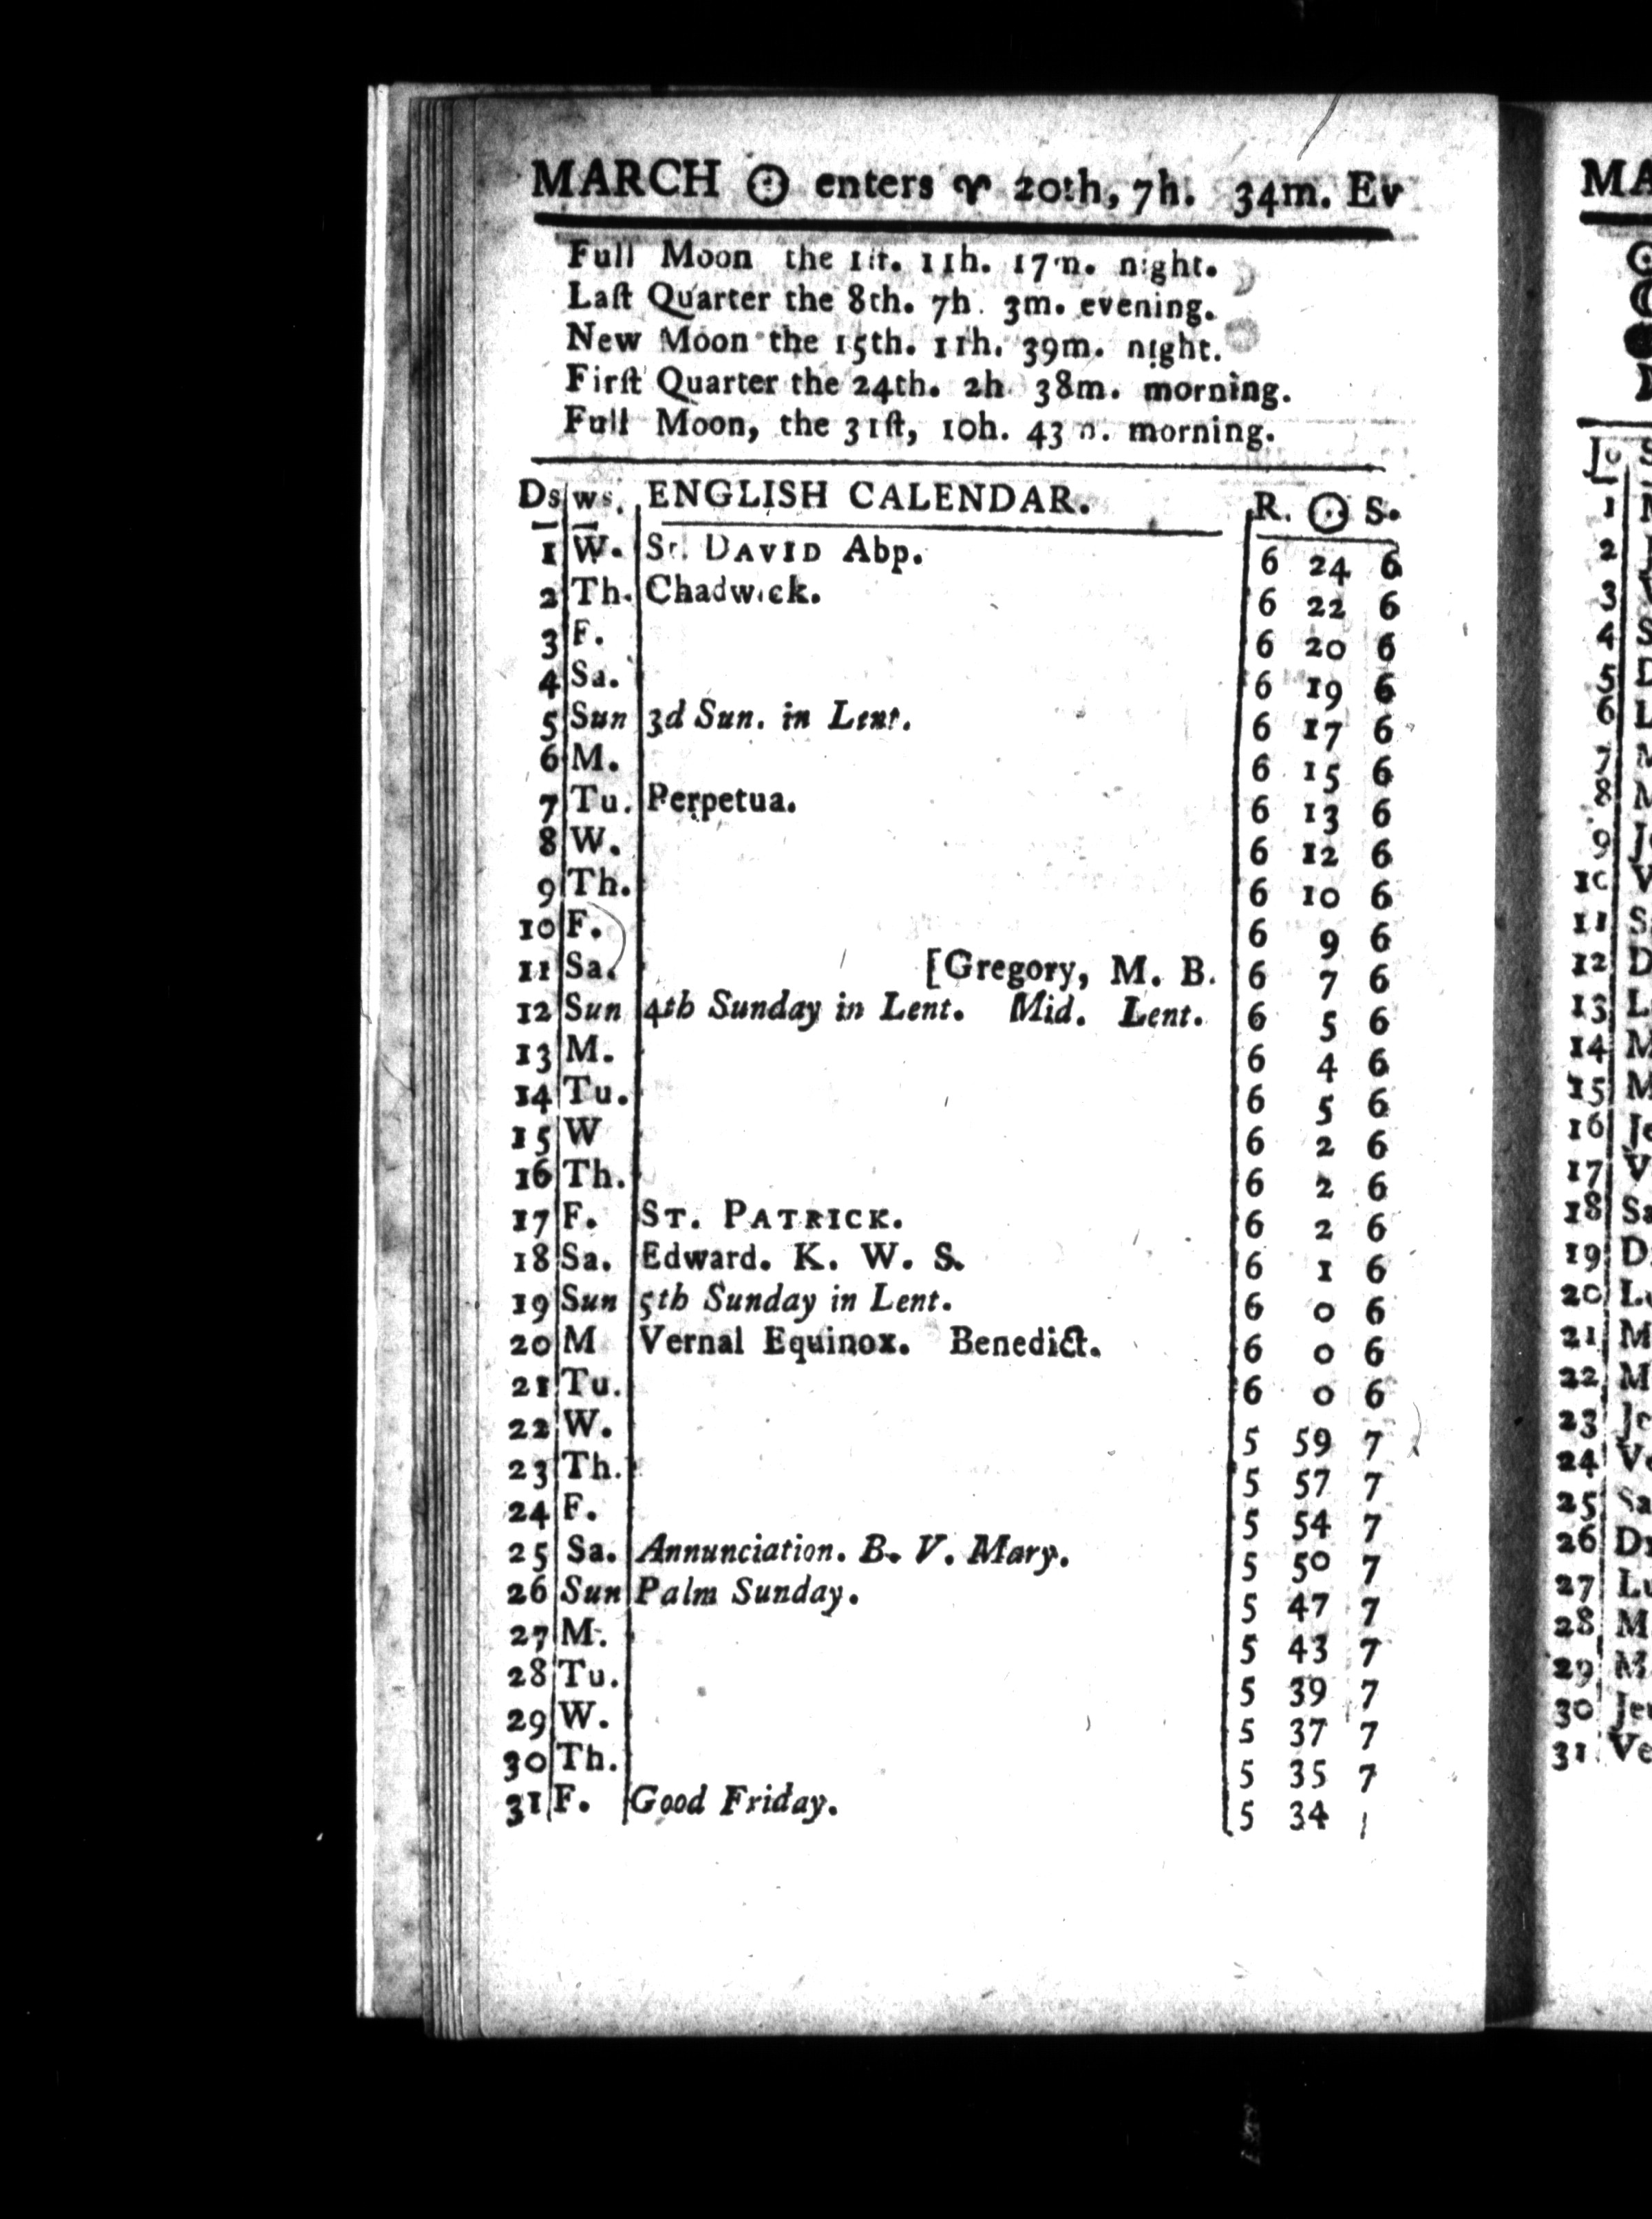 MARCH ☉ enters ♈ 20th, 7h. 34m. Ev
Full Moon the 1st. 11h. 17m. night.
Laſt Quarter the 8th. 7h. 3m. evening.
New Moon the 15th. 11h. 39m. night.
Firſt Quarter the 24th. 2h 38m. morning.
Full Moon, the 31ſt, 10h. 43 m. morning.
Ds ws. ENGLISH CALENDAR. R. ☉ S.
1 W. St. DAVID Abp. 6 24 6
2 Th. Chadwick. 6 22 6
3 F. 6 20 6
4 Sa. 6 19 6
5 Sun 3d Sun. in Lent. 6 17 6
6 M. 6 15 6
7 Tu. Perpetua. 6 13 6
8 W. 6 12 6
9 Th. 6 10 6
10 F. 6 9 6
11 Sa. [Gregory, M. B. 6 7 6
12 Sun 4th Sunday in Lent. Mid. Lent. 6 5 6
13 M. 6 4 6
14 Tu. 6 5 6
15 W 6 2 6
16 Th. 6 2 6
17 F. ST. PATRICK. 6 2 6
18 Sa. Edward. K. W. S. 6 1 6
19 Sun 5th Sunday in Lent. 6 0 6
20 M Vernal Equinox. Benedict. 6 0 6
21 Tu. 6 0 6
22 W. 5 59 7
23 Th. 5 57 7
24 F. 5 54 7
25 Sa. Annunciation. B. V. Mary. 5 50 7
26 Sun Palm Sunday. 5 47 7
27 M. 5 43 7
28 Tu. 5 39 7
29 W. 5 37 7
30 Th. 5 35 7
31 F. Good Friday. 5 34
MA
1
2
3
4
5
6
7
8
9
11
12
13
14
15
16
17
18
19
20
21
22
23
24
25
26
27
28
29
30
31